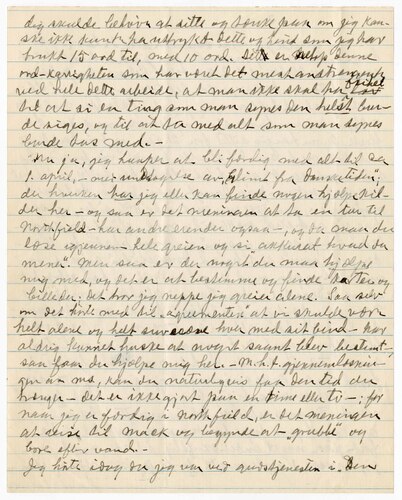 jeg skulde behøve at sitte og tænke paa om jeg kan-
ske ikke kunde ha uttrykt dette og hint som jeg har
brukt 15 ord til, med 10 ord. Det er netop denne
ord-kargheten som har været det mest anstrengende
ved hele dette arbeide, at man ikke skal ha
til at si en ting som man synes den helst bur-
de siges, og til at ta med alt som man synes
burde tas med.-
Nu ja, jeg haaper at bli færdig med alt til ca
1. april, - med undtagelse av
der hverken har jeg eller kan finde nogen hjælpekil-
der her - og saa er det meningen at ta en tur til
Northfield - har andre ærender ogsaa -, og da maa du
læse igjennem hele greien og si akkurat hvad du
mener. Men saa er det noget du maa hjælpe
mig med, og det er at bestemme og finde karter og
billeder; det tror jeg neppe jeg greier alene. Saa
om det hørte med til "agreementen" at vi skulde være
helt alene og helt hver med sit bind - kan
aldrig huske at noget saant blev bestemt -
saa faar du hjælpe mig her. - M.h.t. gjennemlæsnin-
gen av ms, kan du naturligvis faa den tid du
trenger - det er ikke gjort paa en time eller to -; for
naar jeg er færdig i Northfield, er det meningen
at reise til Mack og begynde at "grubbe" og
bore efter vand.-
Jeg hørte idag da jeg var ved gudstjenesten i Den